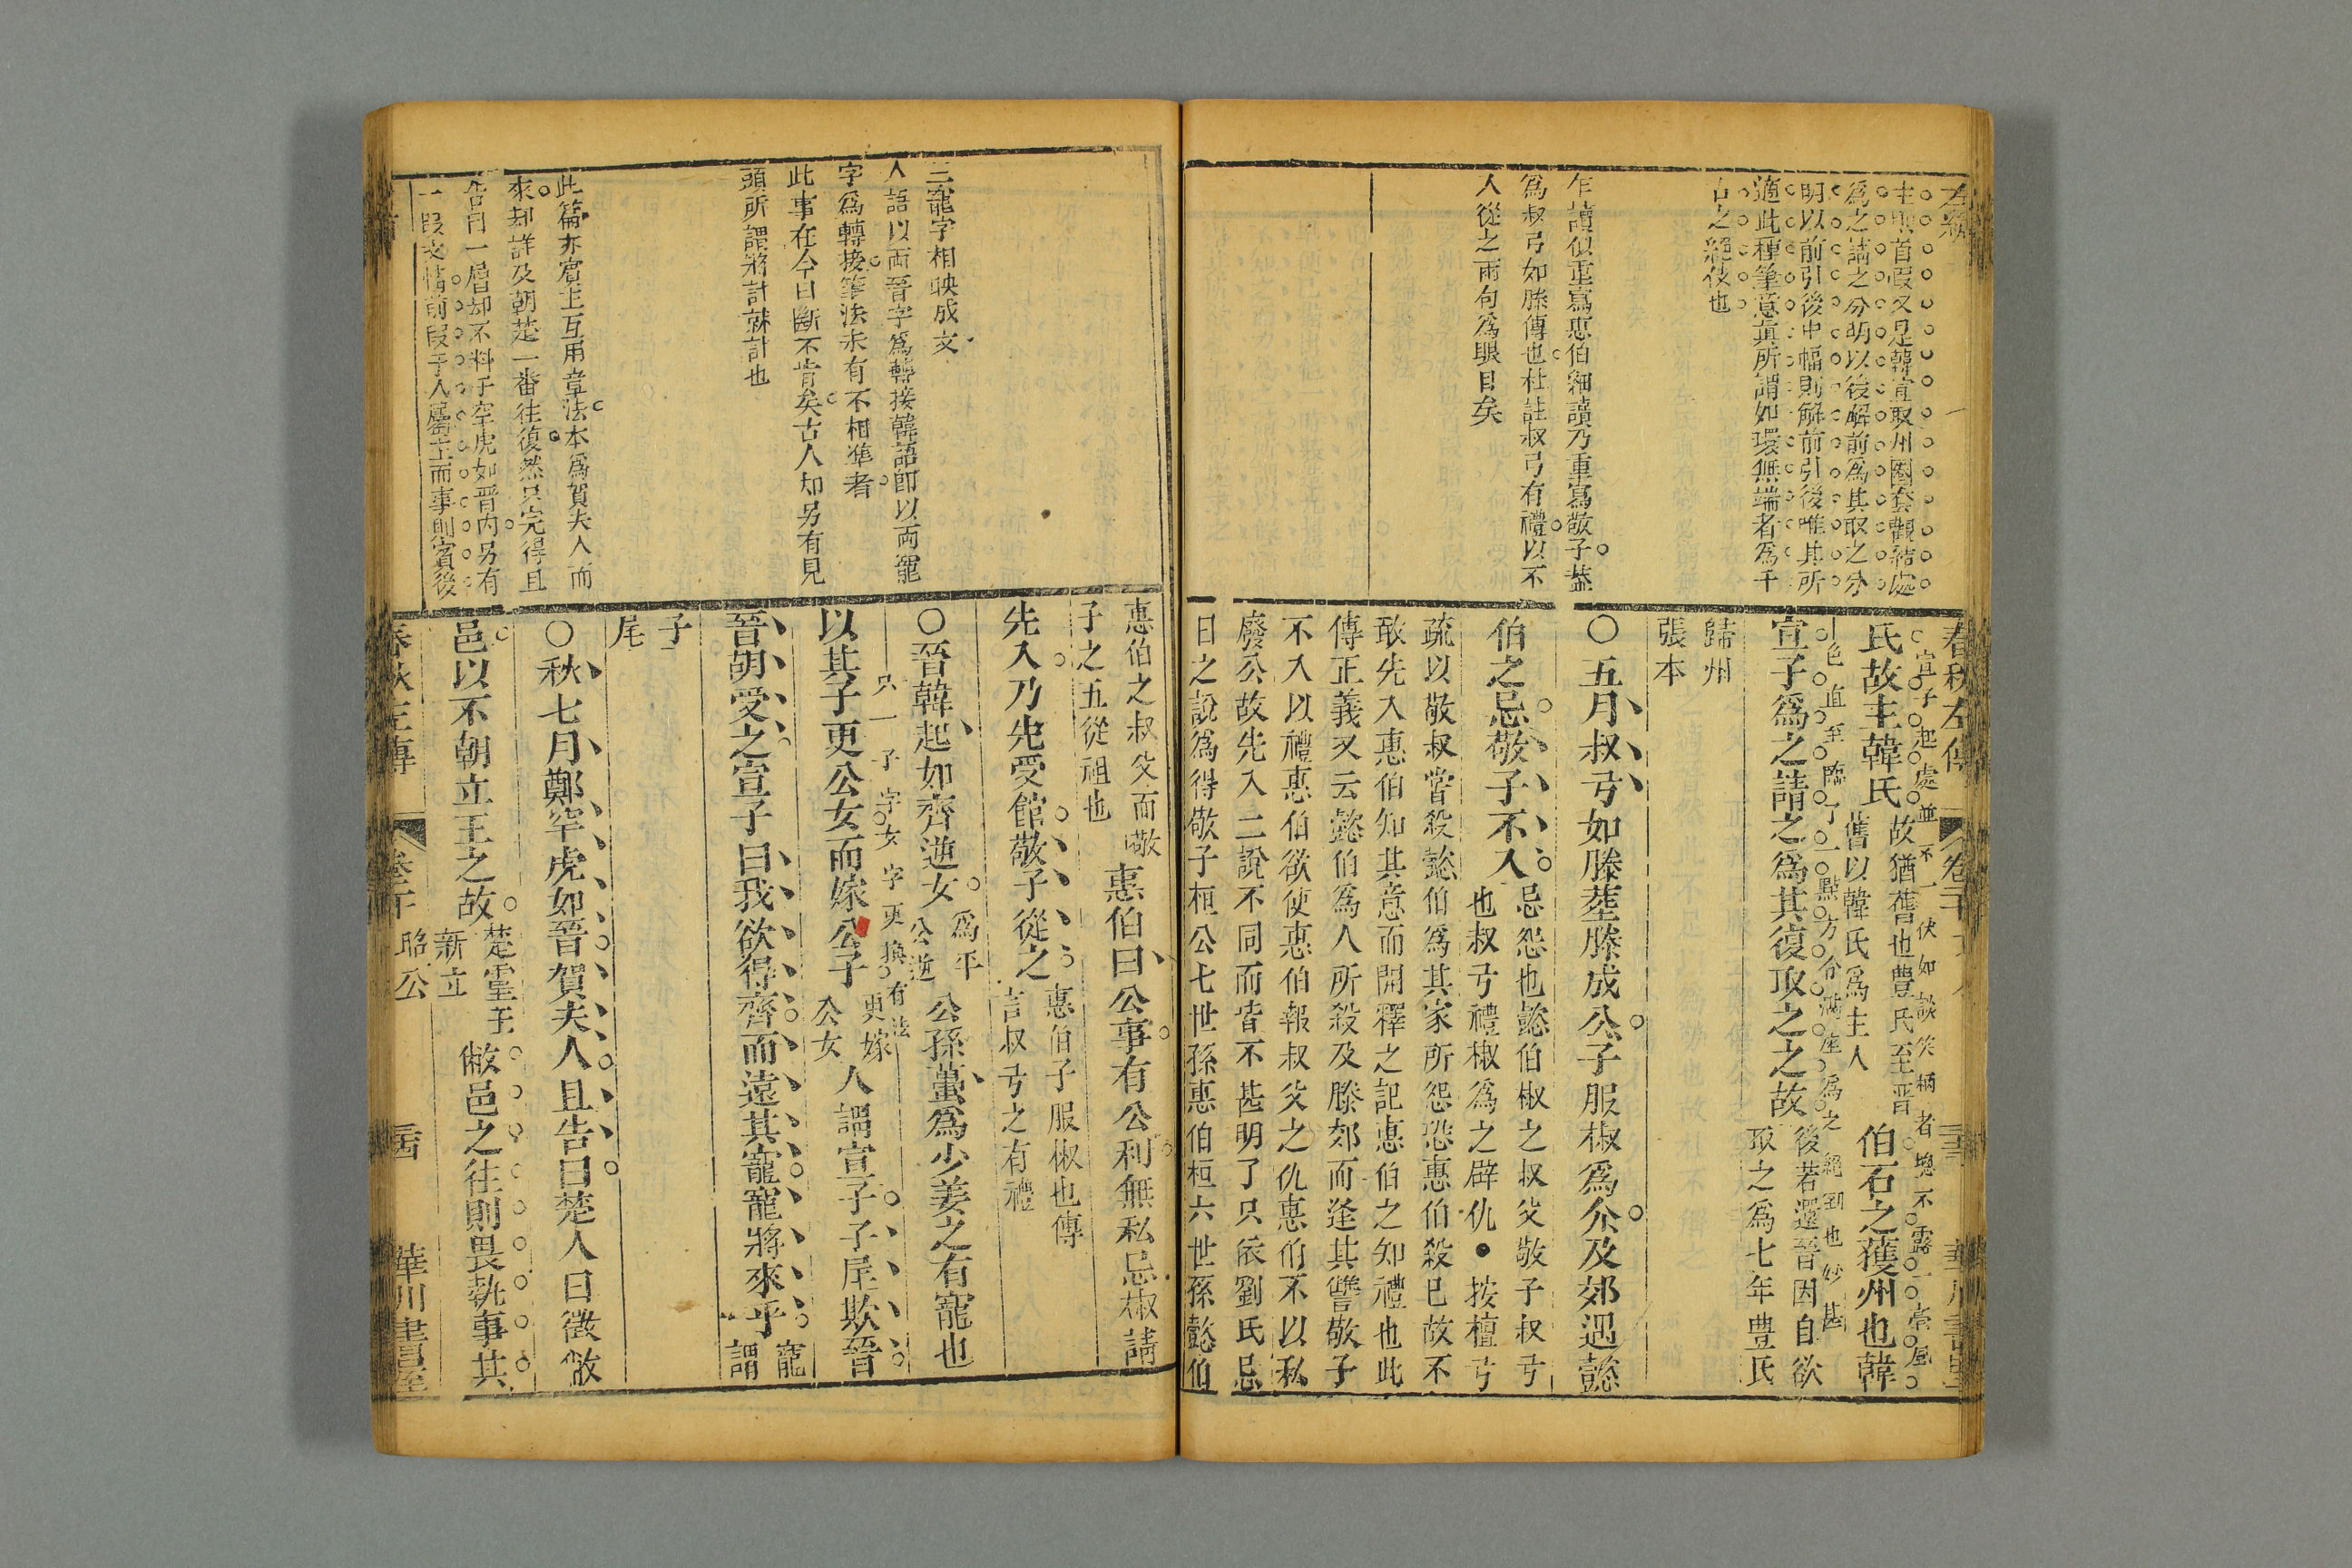 左繡
主則首段又是韓宣取州圈套觀結處
爲之請之分明以後解前爲其取之分
明以前引後中幅則解前引後唯其所
適此種筆意眞所謂如環無端者爲千
古之絕伎也
乍讀似重寫惠伯細讀乃重寫敬子葢
爲叔弓如滕傳也杜註叔弓有禮以不
人從之兩句爲眼目矣
春秋左傳
華川書屋
宣子起處並不一伏如談笑
氏故主韓氏
故猶舊也豊氏至晉
舊以韓氏爲主人
伯石之獲州也韓
色直至臨了一點方
宣子爲之請之爲其復取之之故
後若還晉因自欲
取之爲七年豊氏
歸州
張本
〇五月叔弓如滕葬滕成公子服椒爲介及郊遇懿
伯之忌敬子不入
忌怨也懿伯椒之叔父敬子叔弓
也叔弓禮椒爲之辟仇●按檀弓
疏以敬叔嘗殺懿伯爲其家所怨恐惠伯殺已故不
敢先入惠伯知其意而開釋之記惠伯之知禮也此
傳正義又云懿伯爲人所殺及滕郊而逢其讐敬子
不入以禮惠伯欲使惠伯報叔父之仇惠伯不以私
廢公故先入二說不同而皆不甚明了只依劉氏忌
日之說爲得敬子桓公七世孫惠伯桓六世孫懿伯
三寵字相映成文
人語以兩晉字爲轉接韓語卽以兩寵
字爲轉接筆法未有不相準者
此事在今日斷不肯矣古人却另有見
頭所謂將計就計也
此篇亦賓主互用章法本爲賀夫人而
來却詳及朝楚一番往復然只完得且
告曰一層却不料于罕虎如晉內另有
一段文情前段于人屬主而事則賓後
惠伯之叔父而敬
子之五從祖也
惠伯曰公事有公利無私忌椒請
先入乃先受館敬子從之
惠伯子服椒也傳
言叔弓之有禮
〇晉韓起如齊逆女
爲平
公逆
公孫蠆爲少姜之有寵也
只一子字女字更換有法
以其子更公女而嫁公子
更嫁
公女
人謂宣子子尾欺晉
晉胡受之宣子曰我欲得齊而遠其寵寵將來乎
寵
謂
子
尾
〇秋七月鄭罕虎如晉賀夫人且告曰楚人日徵敝
邑以不朝立王之故
楚靈王
新立
敝邑之往則畏執事其
春秋左傳
卷二十
昭公
華川書屋